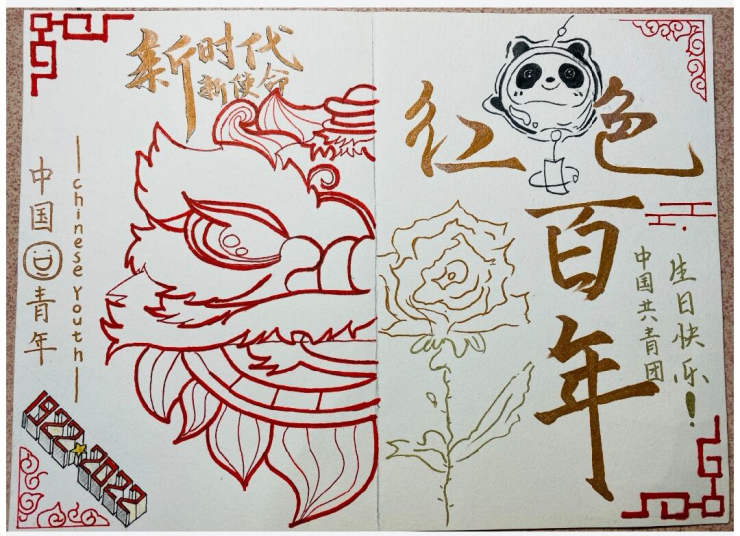 新时代
新使命
中国
青年
chinese youth
1922 2022
红色
百年
中国共青团
生日快乐!